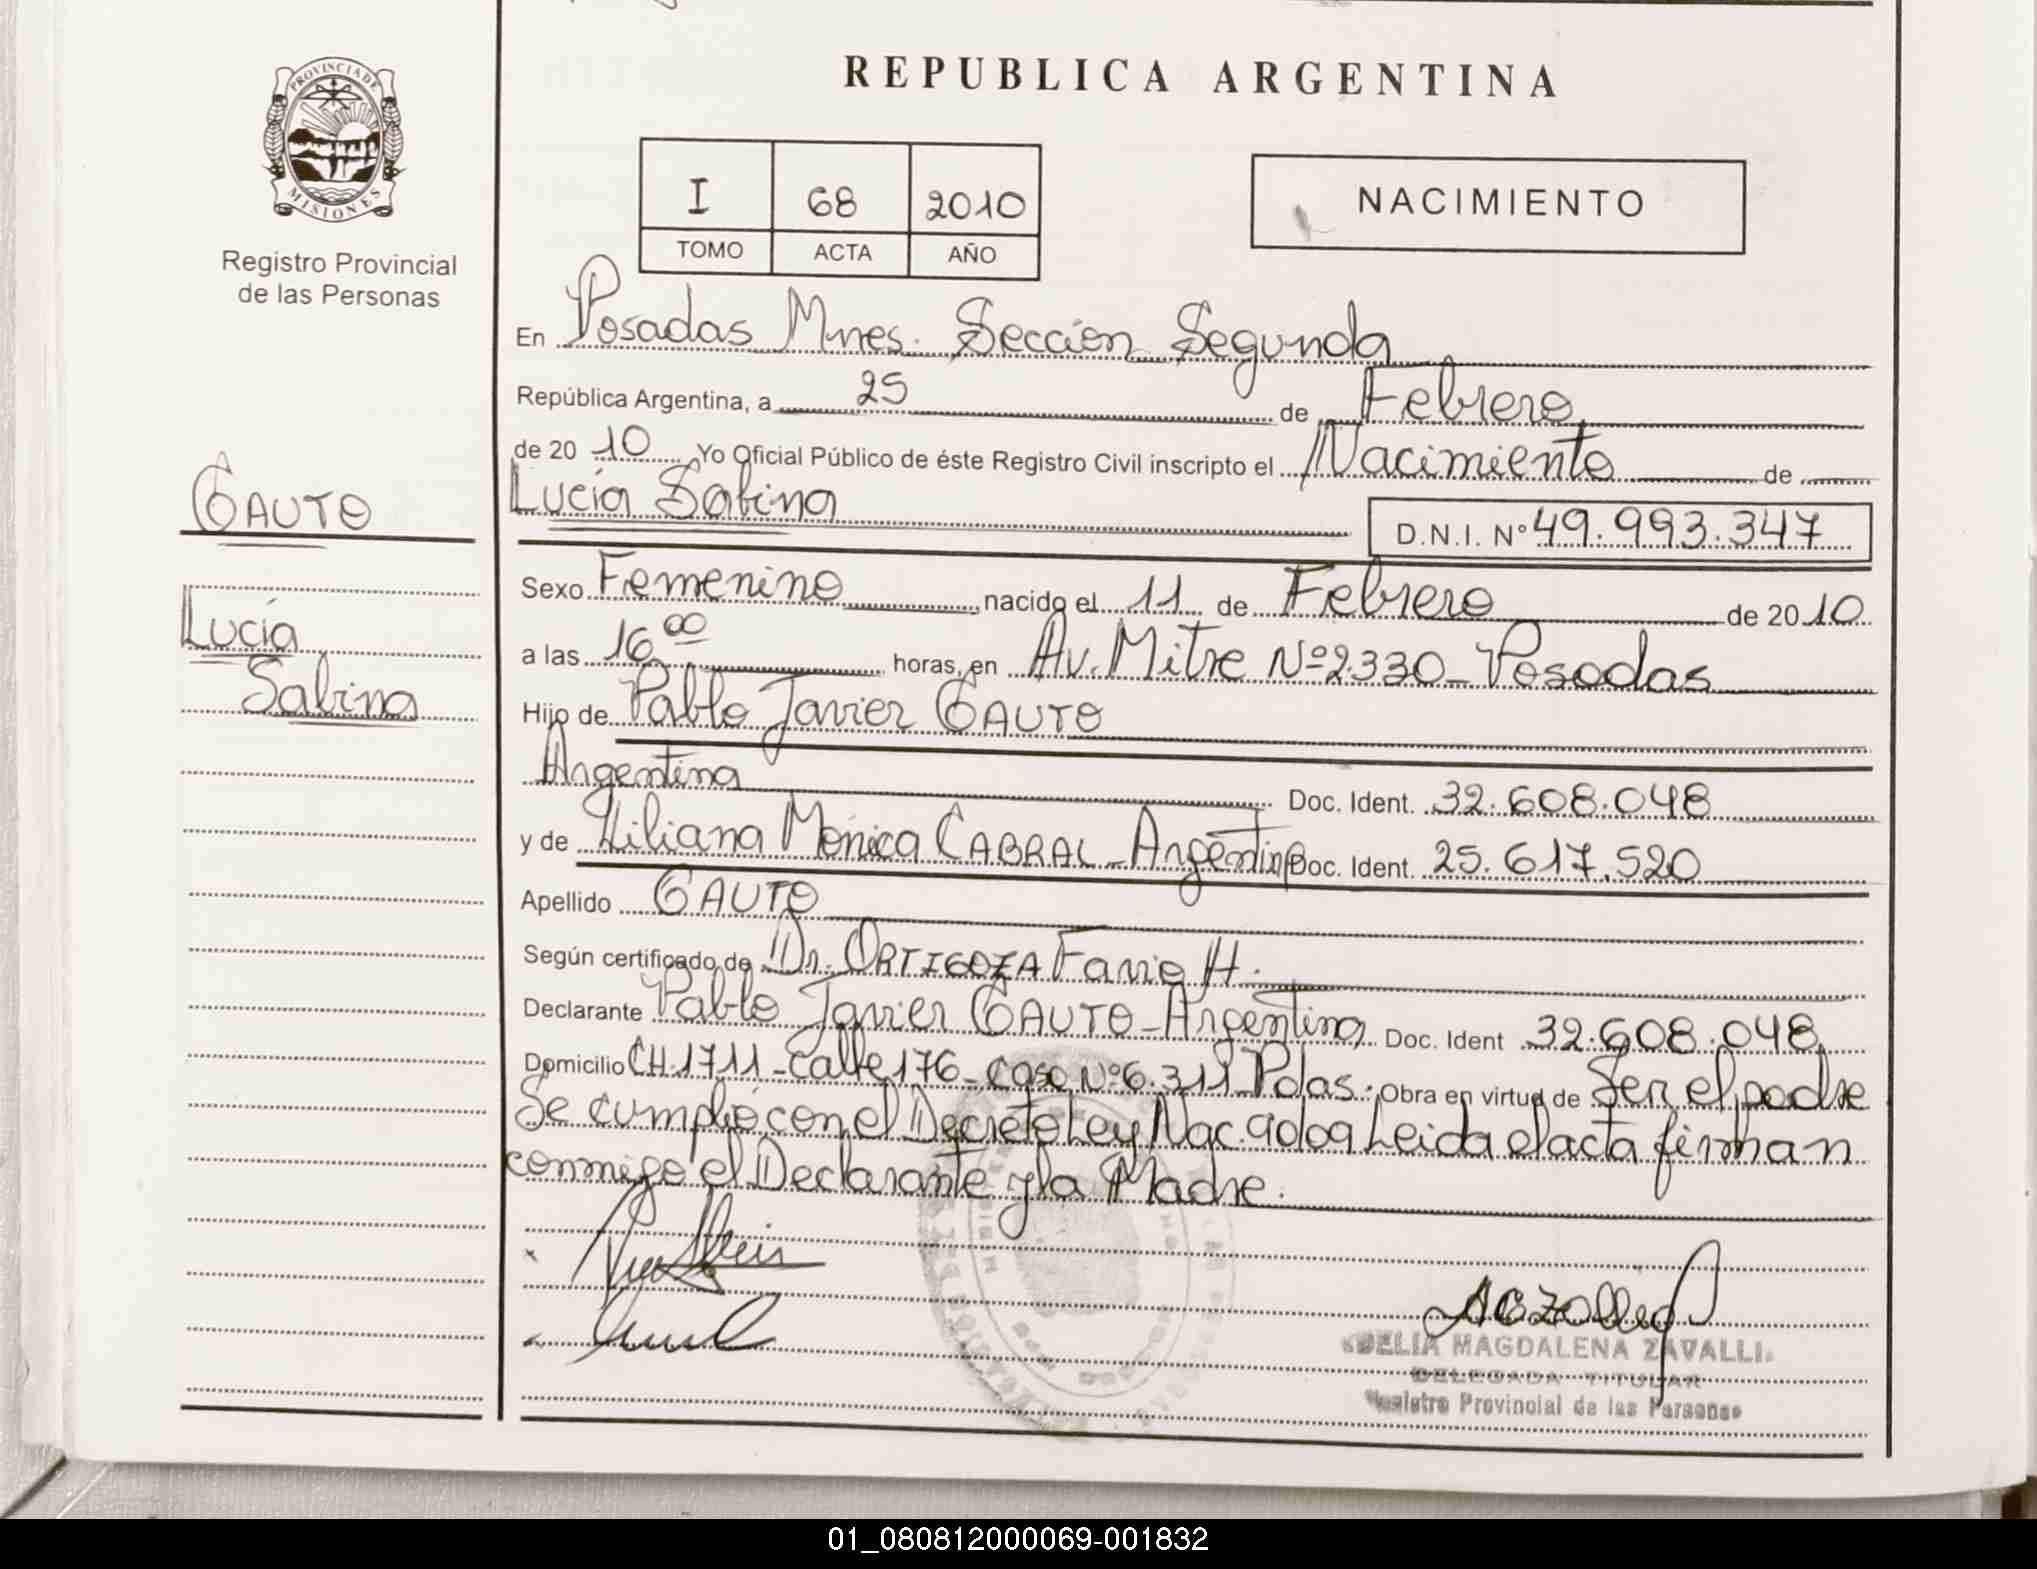 REPUBLICA ARGENTINA
PROVINCIA DE
MISIONES
Registro Provincial
de las Personas
I 68 2010
TOMO ACTA AÑO
NACIMIENTO
En Posadas Mnes. Sección Segunda
República Argentina, a 25 de Febrero
de 20 10 Yo Oficial Público de éste Registro Civil inscripto el Nacimiento de
Lucía Sabina
D.N.I. Nº 49.993.347
GAUTO
Lucía
Sabina
Sexo Femenino nacido el 11 de Febrero de 2010
a las 16 00 horas, en Av. Mitre Nº 2330 - Posadas
Hijo de Pablo Javier GAUTO
Argentina Doc. Ident. 32.608.048
y de Liliana Mónica CABRAL - Argentina Doc. Ident. 25.617.520
Apellido GAUTO
Según certificado de Dr. ORTIGOZA Favio H.
Declarante Pablo Javier GAUTO - Argentina Doc. Ident 32.608.048
Domicilio CH. 1711 - Calle 176 - Casa Nº 6.311 Pdas. Obra en virtud de Ser el padre
Se cumplió con el Decreto Ley Nac. 9009 Leida el acta firman
conmigo el Declarante y la Madre.
DELIA MAGDALENA ZAVALLI
DELEGADA TITULAR
Registro Provincial de las Personas
01_080812000069-001832